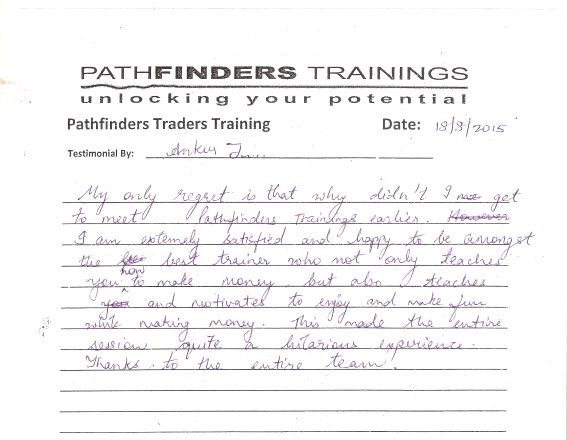 PATHFINDERS TRAININGS
unlocking your potential
Pathfinders Traders Training Date: 18/8/2015
Testimonial By: Ankur
My only regret is that why didn't I get
to meet Pathfinders Trainings earlier. However
I am extemely satisfied and happy to be amongst
the best trainer who not only teaches
you how to make money but also teaches
you and motivates to enjoy and make fun
while making money. This made the entire
session quite a hilarious experience.
Thanks to the entire team.